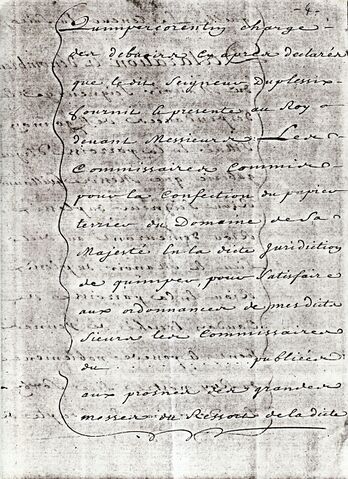 - 4 -
Quimpercorentin charge
des debvoirs Cy apres declarés
que ledit Seigneur Duplessix
fournit et presente au Roy
devant Messieurs Les
Commissaires Commis
pour la Confection du papier
terrier du Domaine de Sa
Majesté En la dite Juridiction
de quimper, pour Satisfaire
aux ordonnances de mesdits
Sieurs les Commissaires
du publiées
aux prosnes des grandes
messes du Ressort de la dite